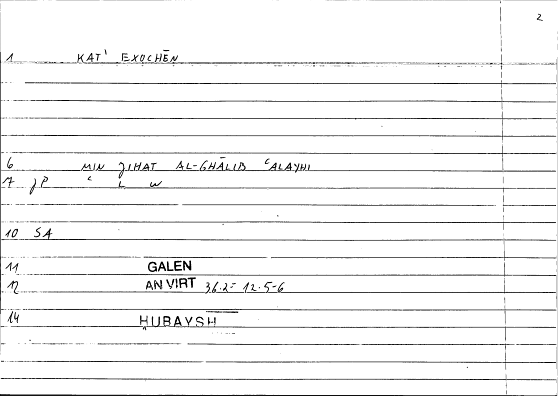 2
1 KAT' EXOCHĒN
6 MIN JIHAT AL-GHĀLIB ʿALAYHI
7 JP ʿ L W
10 SA
11 GALEN
12 AN VIRT 36.2= 12.5-6
14 ḤUBAYSH